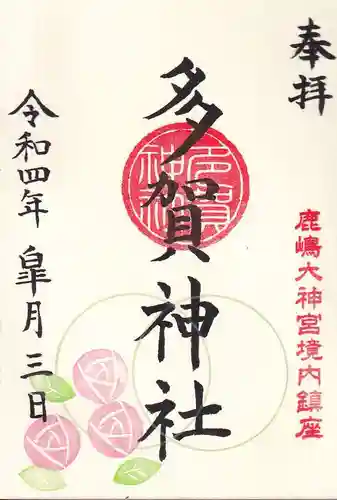 奉拝
鹿嶋大神宮境内鎮座
多賀神社
多賀神社
令和四年 皐月三日